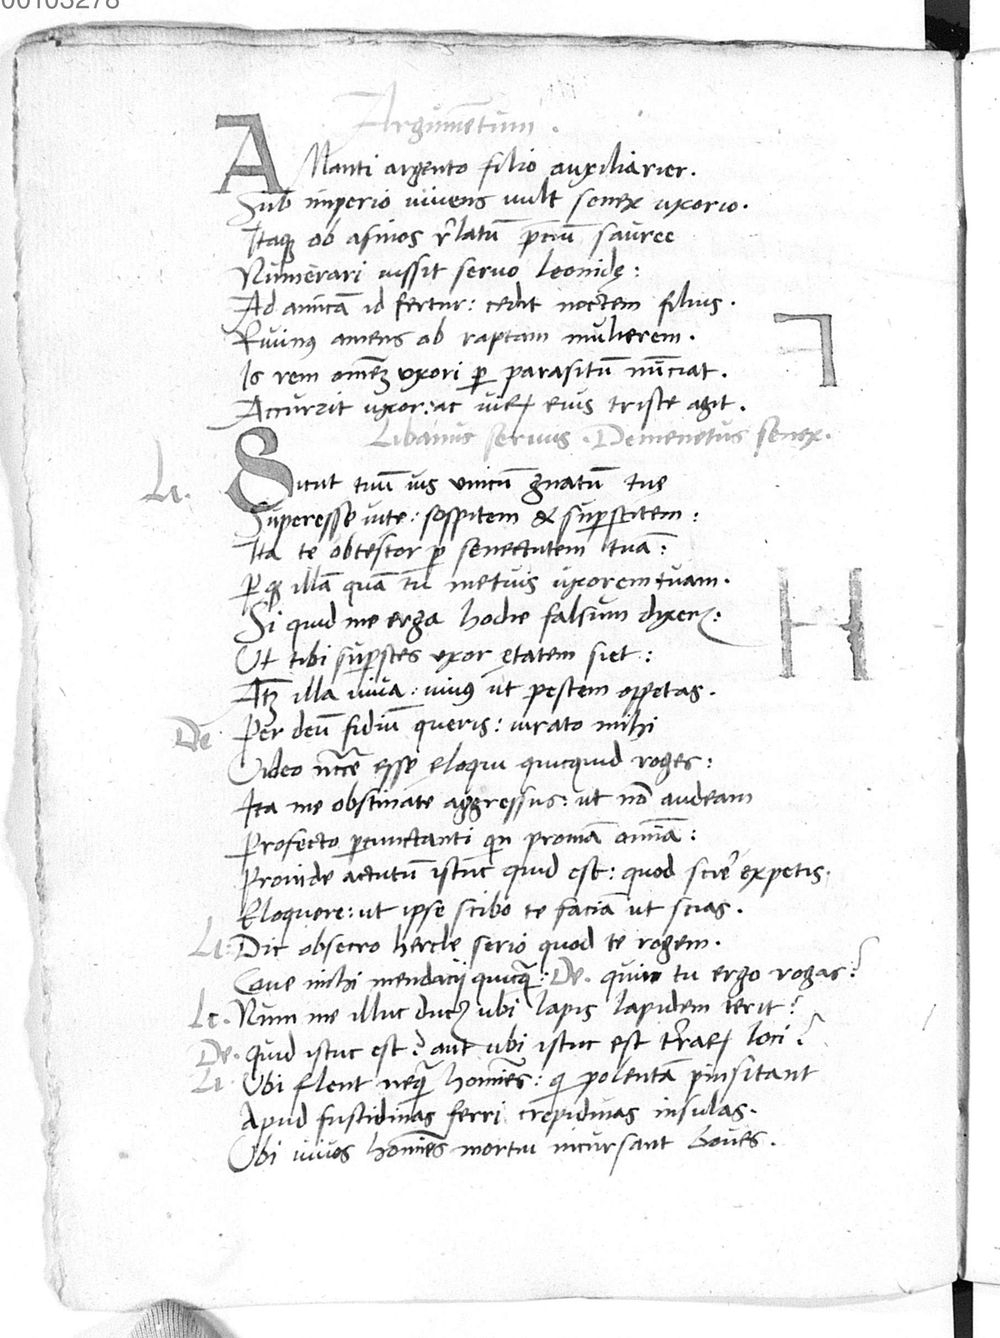 00103278
Argumētum .
AManti argento filio auxiliarier.
Sub imperio uiuens uult senex uxorio.
Itaq; ob asinos r̄latū p̄ciū sauree
Numerari iussit seruo leonidę :
Ad amicā id fertur: cedit noctem filius.
Riuinꝰ amens ob raptam mulierem.
Is rem omēꝫ uxori ꝑ parasitū nūciat.
Accurrit uxor: ac uirꝝ eius triste agit.
Libanus seruus . Demenetus senex.
Li. Sicut tuū uis unicū gnatū tuę
Superesse uite: sospitem & suꝑstitem :
Ita te obtestor ꝑ senectutem tuā :
Ꝑ q; illā quā tu metuis uxorem tuam.
Si quid me erga hodie falsum dixerꝭ:
Ut tibi suꝑstes uxor ętatem siet :
Atqꝫ illa uiua : uiuꝰ ut pestem oppetas.
De Per deū fidiū queris : iurato mihi
Video nc̄cē esse eloqui quicquid roges :
Ita me obstinate aggressus: ut nō audeam
Profecto ꝑcunctanti qn promā omīa :
Proinde actutū istuc quid est: quod scire expetis.
Eloquere: ut ipse scibo te faciā ut scias.
Li. Dic obsecro hercle serio quod te rogem.
Caue mihi mendacij quicq̄ : De. quin tu ergo rogas?
Li. Num me illuc ducꝭ ubi lapis lapidem terit?
De. Quid istuc est? aut ubi istuc est terrarꝝ loci?
Li. Ubi flent neq̄ homīes : q polentā pinsitant
Apud fustidinas ferri crepidinas insulas.
Ubi uiuos homīes mortui incursant boues.
F
H